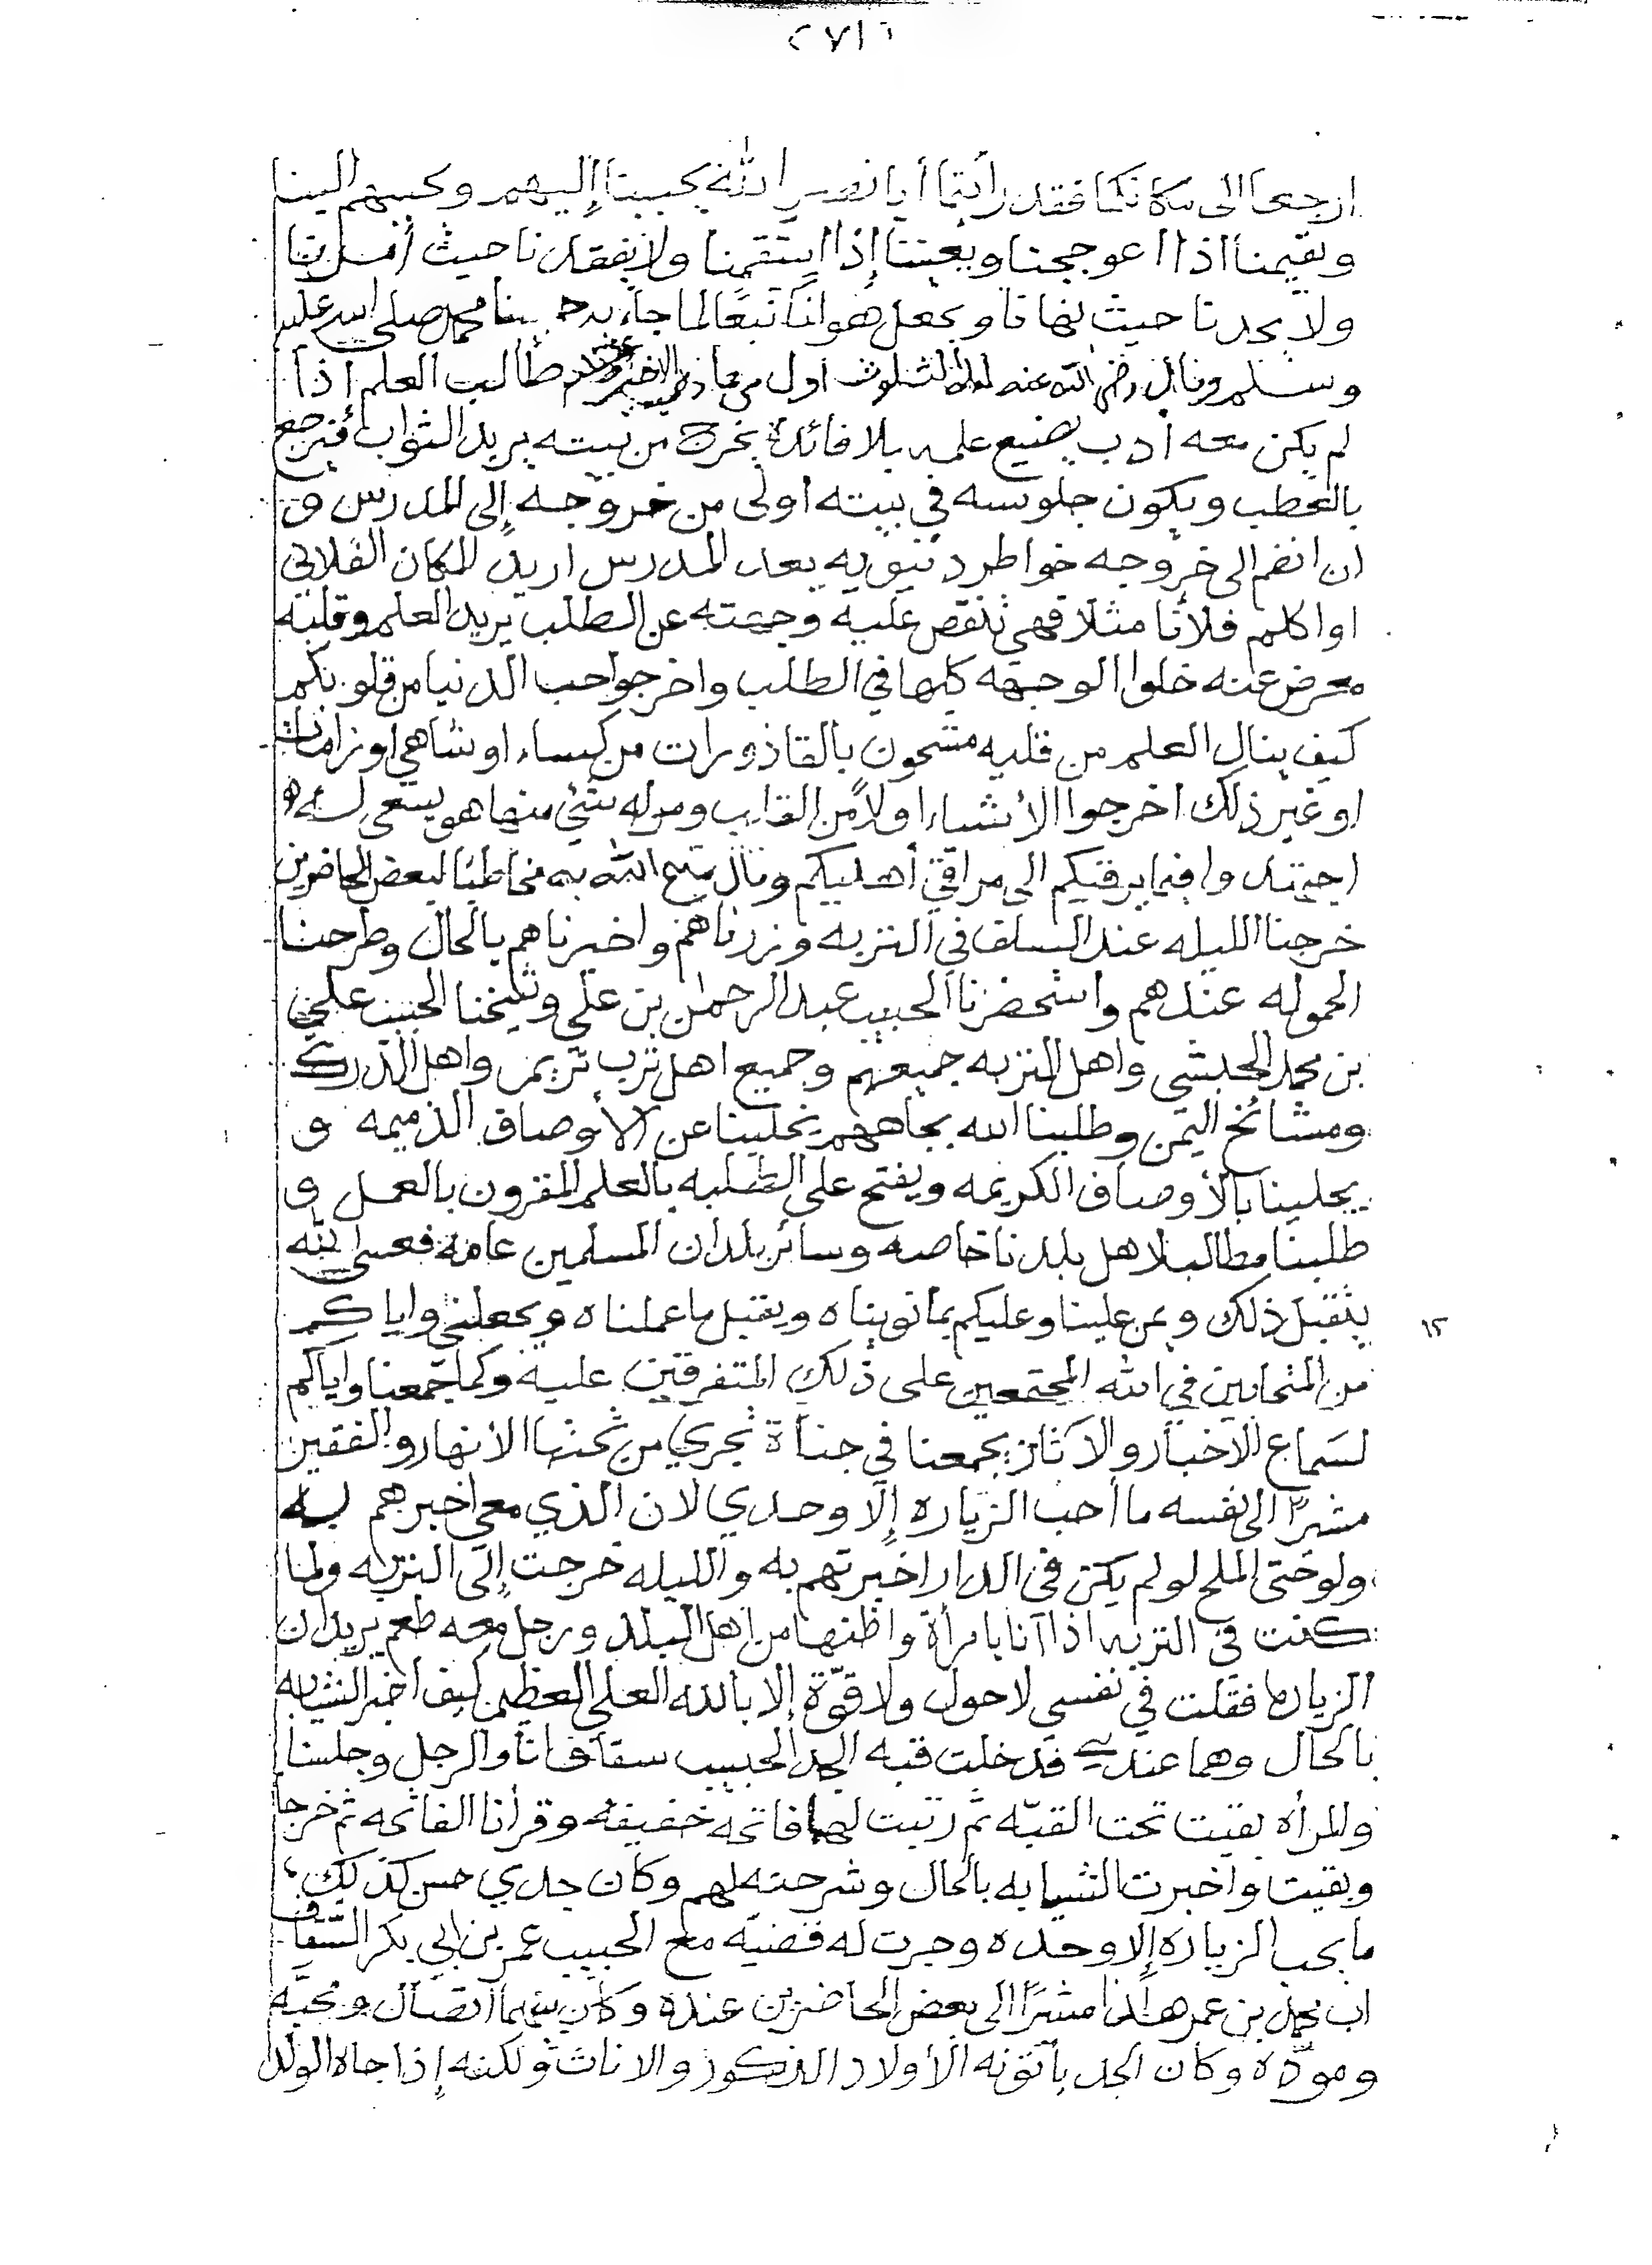 (٢٧١)
ارجعا الى مكانكما فقد رأيتما أيا نفس الله يحببنا إليهم ويحببهم الينا
ويقيمنا اذا اعوججنا ويعيننا إذا استقمنا ولا يفقدنا حيث أمرنا
ولا يجدنا حيث نهانا ويجعل هوانا تبعًا لما جاء به حبيبنا محمد صلى الله عليه
وسلم وقال رضي الله عنه ليلة الثلوث أول من جماد الاخير طالب العلم اذا
لم يكن معه أدب يضيع علمه بلا فائدة يخرج من بيته يريد الثواب فيرجع
بالحطب ويكون جلوسه في بيته اولى من خروجه إلى المدرس و
ان انضم الى خروجه خواطر دنيويه بعد المدرس اريد المكان الفلاني
او اكلم فلانًا مثلا فهي نقص عليه وجهته عن الطلب يريد العلم وقلبه
معرض عنه خلوا الوجهه كلها في الطلب واخرجوا حب الدنيا من قلوبكم
كيف ينال العلم من قلبه مشحون بالقاذورات من كساء او شاهي او
او غير ذلك اخرجوا الأشياء اولًا من القلب ومن له شئ منها هو يسعى له
اجتهدوا فيما يرقيكم الى مراقي أهليكم وقال متع الله به مخاطبًا لبعض الحاضرين
خرجنا الليله عند السلف في التربه وزرناهم واخبرناهم بالحال وطرحنا
الحموله عندهم واستحضرنا الحبيب عبد الرحمن بن علي وشيخنا الحبيب علي
بن محمد الحبشي واهل التربه جميعهم وجميع اهل ترب تريم واهل الدرك
ومشائخ اليمن وطلبنا الله بجاههم يخلينا عن الأوصاف الذميمه و
يحلينا بالأوصاف الكريمه ويفتح على الطلبه بالعلم المقرون بالعمل و
طلبنا مطالب لاهل بلدنا خاصه وسائر بلدان المسلمين عامه فعسى الله
يتقبل ذلك ويمن علينا وعليكم بما نويناه ويقبل ما عملناه ويجعلني واياكم
من المتحابين في الله المجتمعين على ذلك المتفرقين عليه وكما جمعنا واياكم
لسماع الاخبار والاثار يجمعنا في جناة تجري من تحتها الأنهار
مشيرًا الى نفسه ما أحب الزياره إلا وحدي لان الذي معي اخبرهم به
ولو حتى الملح لو لم يكن في الدار اخبرتهم به والليله خرجت إلى التربه ولما
كنت في التربه اذا أنا بامرأة واظنها من اهل البلد ورجل معه طعم يريدان
الزياره فقلت في نفسي لا حول ولا قوّة إلا بالله العلي العظيم كيف اخبر الشيابه
بالحال وهما عندي فدخلت قبه الجد الحبيب سقاف انا والرجل وجلسنا
والمرأه بقيت تحت القبّه ثم رتبت لهما فاتحه خفيفه وقرأنا الفاتحه ثم خرجا
وبقيت واخبرت الشيابه بالحال وشرحته لهم وكان جدي حسن كذلك
ما يحب الزياره إلا وحده وجرت له قضيه مع الحبيب عمر بن ابي بكر السّقاف
اب محمد بن عمر هذا مشيرًا الى بعض الحاضرين عنده وكان بينهما اتصال ومحبّه
ومودّه وكان الجد يأتونه الأولاد الذكور والاناث ولكنه إذا جاه الولد
١٢